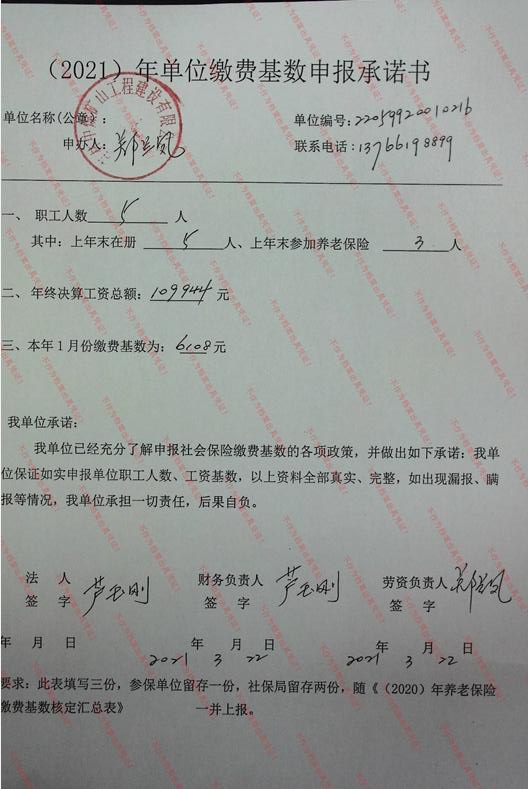 （2021）年单位缴费基数申报承诺书
单位名称(公章)： 单位编号：22059920010216
申办人： 联系电话：13766198899
一、 职工人数 5 人
其中：上年末在册 5 人、上年末参加养老保险 3 人
二、年终决算工资总额：109944 元
三、本年1月份缴费基数为：6108元
我单位承诺：
我单位已经充分了解申报社会保险缴费基数的各项政策，并做出如下承诺：我单
位保证如实申报单位职工人数、工资基数，以上资料全部真实、完整，如出现漏报、瞒
报等情况，我单位承担一切责任，后果自负。
法 人 财务负责人 劳资负责人
签 字 芦玉刚 签 字 芦玉刚 签 字
年 月 日 年 月 日 年 月 日
2021 3 22 2021 3 22
要求：此表填写三份，参保单位留存一份，社保局留存两份，随《（2020）年养老保险
缴费基数核定汇总表》 一并上报。